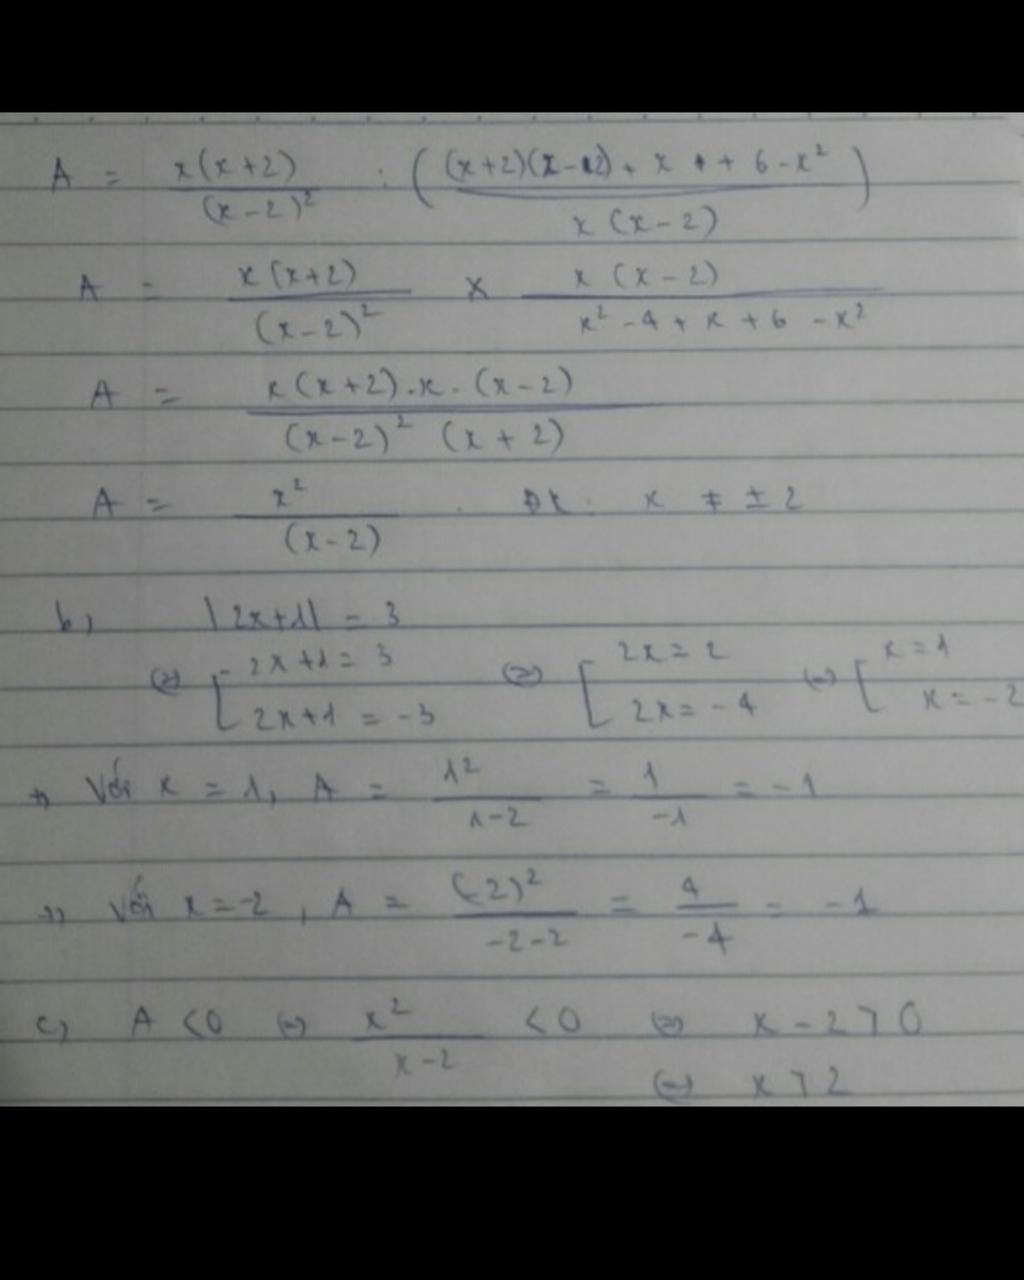 A = x(x+2)/(x-2)² : ((x+2)(x-2) + x + + 6 - x²)/(x(x-2))
A = x(x+2)/(x-2)² × x(x-2)/(x² - 4 + x + 6 - x²)
A = x(x+2).x.(x-2)/((x-2)² (x+2))
A = x²/(x-2) . ĐK: x ≠ ± 2
b, |2x+1| = 3
(=) [ 2x+1 = 3 ; 2x+1 = -3 (=) [ 2x = 2 ; 2x = -4 (=) [ x = 1 ; x = -2
+, Với x = 1, A = 1²/(1-2) = 1/(-1) = -1
+, Với x = -2, A = (-2)²/(-2-2) = 4/(-4) = -1
c, A < 0 (=) x²/(x-2) < 0 (=) x - 2 > 0
(=) x > 2